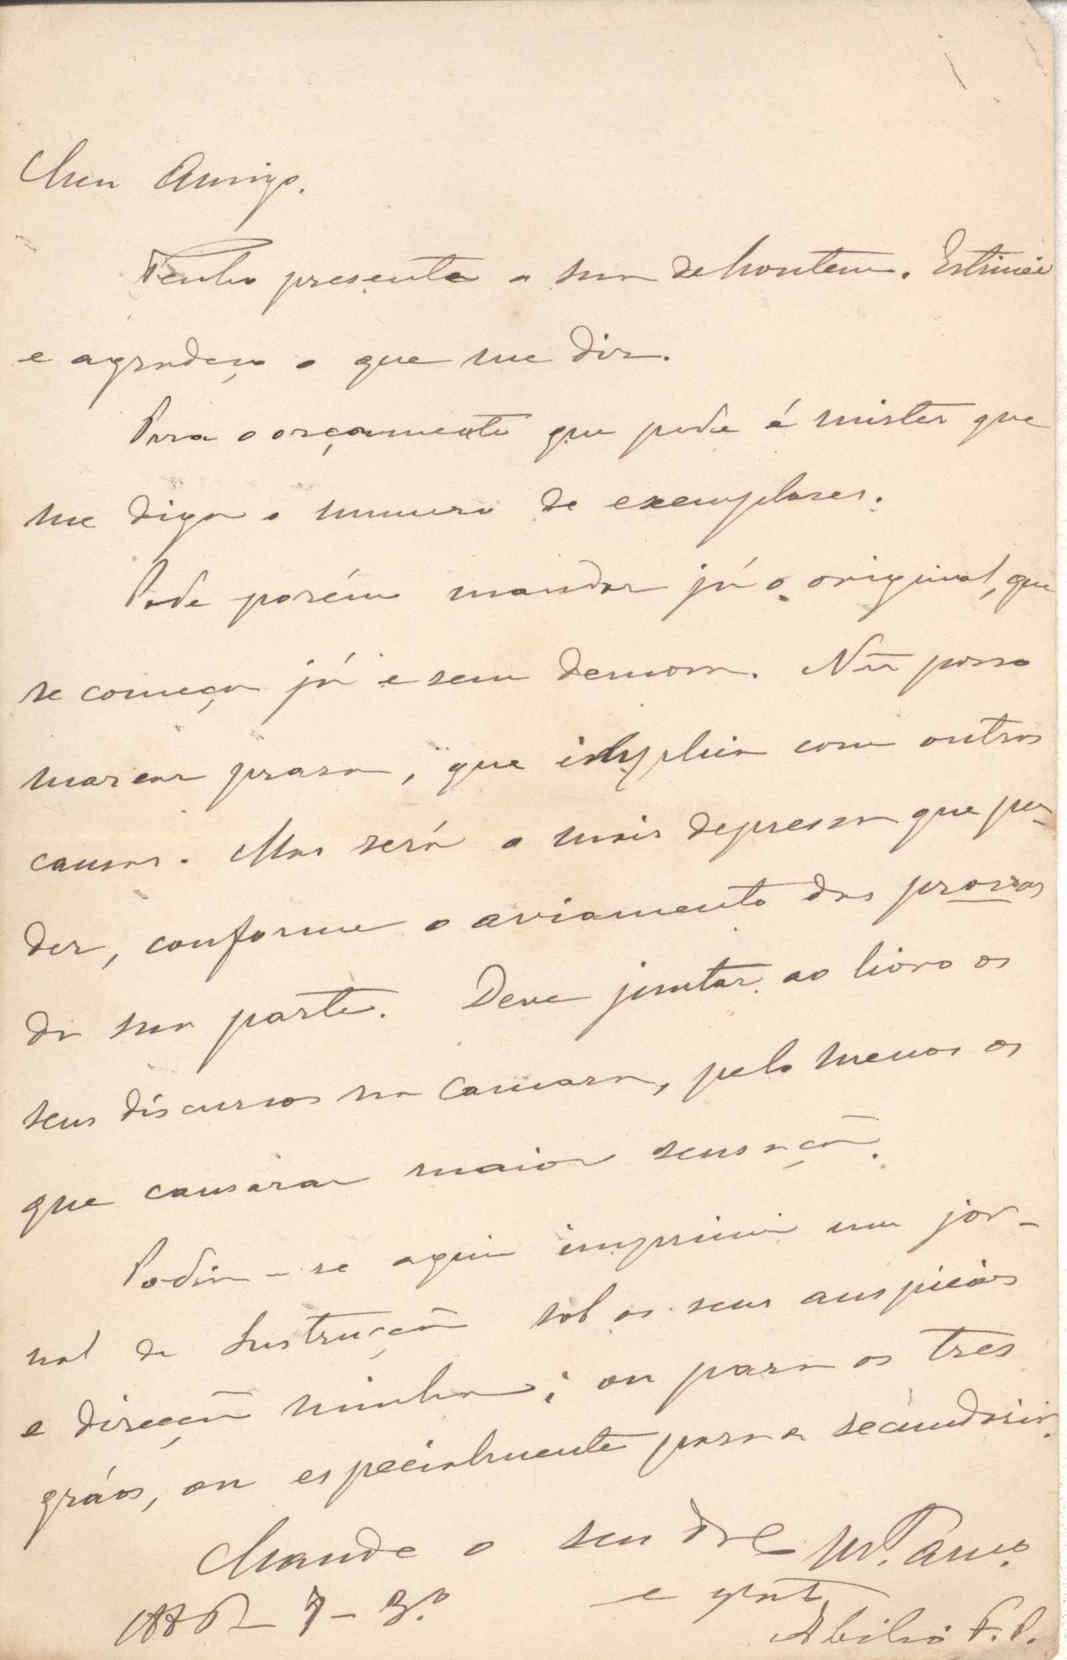 Meu Amigo.
Tenho presente a sua de hontem. Estimei
e agradeço o que me diz.
Para o orçamento que pede é mister que
me diga o numero de exemplares.
Pode porém mandar já o original, que
se começa já e sem demora. Nã posso
marcar praso, que implica com outras
causas. Mas será o mais depressa que pu-
der, conforme o aviamento das provas
da sua parte. Deve juntar ao livro os
seus discursos na camara, pelo menos os
que causaram maior sensaçã.
Podia-se aqui imprimir um jor-
nal de Instrucçã sob os seus auspicios
e direcçã minha; ou para os tres
gráos, ou especialmente para a secundaria.
Mande o seu
7-3.º e
Abilio F. P.